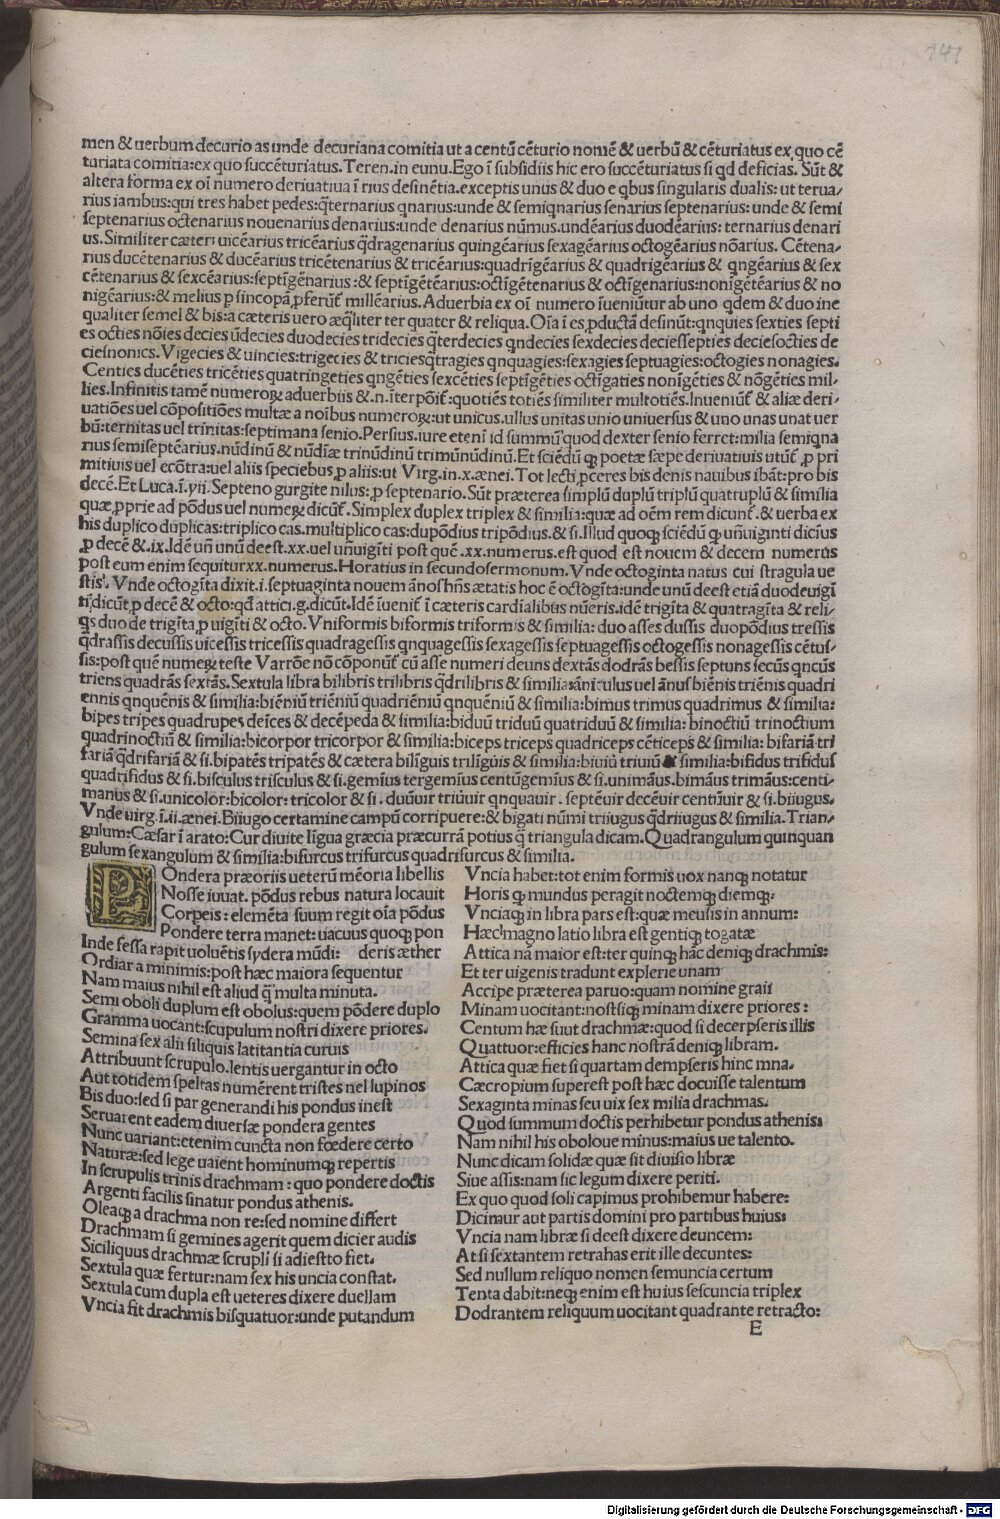 141
men & uerbum decurio as unde decuriana comitia ut a centũ cẽturio nomẽ & uerbũ & cẽturiatus ex quo cẽ
turiata comitia:ex quo succẽturiatus. Teren. in eunu. Ego ĩ subsidiis hic ero succẽturiatus si qd deficias. Sũt &
altera forma ex oĩ numero deriuatiua ĩ rius desinẽtia.exceptis unus & duo e qbus singularis dualis: ut terua/
rius iambus:qui tres habet pedes:q̃ternarius qnarius:unde & semiqnarius senarius septenarius: unde & semi
septenarius octenarius nouenarius denarius:unde denarius nũmus.undẽarius duodẽarius: ternarius denari
us. Similiter cæteri uicẽarius tricẽarius q̃dragenarius quingẽarius sexagẽarius octogẽarius nõarius. Cẽtena/
rius ducẽtenarius & ducẽarius tricẽtenarius & tricẽarius:quadrĩgẽarius & quadrigẽarius & qngẽarius & sex
cẽtenarius & sexcẽarius:septĩgẽnarius :& septĩgẽtẽarius:octĩgẽtenarius & octĩgẽnarius:nonĩgẽtẽarius & no
nigẽarius:& melius p sincopã pferũt̃ millẽarius. Aduerbia ex oĩ numero ĩueniũtur ab uno qdem & duo ine
qualiter semel & bis:a cæteris uero æq̃liter ter quater & reliqua. Oĩa ĩ es pductã desinũt:qnquies sexties septi
es octies nõies decies ũdecies duodecies tridecies q̃terdecies qndecies sexdecies deciessepties deciesocties de
ciesnonics. Vigecies & uincies:trigecies & triciesq̃tragies qnquagies:sexagies septuagies:octogies nonagies.
Centies ducẽties tricẽties quatringeties qngẽties sexcẽties septĩgẽties octĩgaties nonĩgẽties & nõgẽties mil/
lies. Infinitis tamẽ numeroꝝ aduerbiis &.n.iter põit̃:quotiẽs totiẽs similiter multotiẽs. Inueniũt̃ & aliæ deri/
uatiões uel cõpositiões multæ a noibus numeroꝝ:ut unicus.ullus unitas unio uniuersus & uno unas unat uer
bũ:ternitas uel trinitas:septimana senio. Persius. iure etenĩ id summũ quod dexter senio ferret:milia semiqna
rius semiseptẽarius.nũdinũ & nũdĩæ trinũdinũ trimũnũdinũ. Et sciẽdũ ꝙ poetæ sæpe deriuatiuis utũt̃ ꝓ pri
mitiuis uel ecõtra:uel aliis speciebus ꝓ aliis:ut Virg.in.x.ænei. Tot lecti pceres bis denis nauibus ibãt:pro bis
decẽ. Et Luca.ĩ.yii. Septeno gurgite nilus: ꝓ septenario. Sũt præterea simplũ duplũ triplũ quatruplũ & similia
quæ ꝓprie ad põdus uel numeꝝ dicũt̃. Simplex duplex triplex & similia:quæ ad oẽm rem dicunt̃.& uerba ex
his duplico duplicas:triplico cas.multiplico cas:dupõdius tripõdius.& si. Illud quoqꝫ sciẽdũ ꝙ uñuiginti dicĩus
ꝓ decẽ &.ix. Idẽ uñ unũ deest.xx.uel uñuigĩti post quẽ .xx.numerus.est quod est nouem & decem numerus
post eum enim sequiturxx.numerus. Horatius in secundosermonum. Vnde octoginta natus cui stragula ue
stis. Vnde octogĩta dixit.i.septuaginta nouem ãnos hñs ætatis hoc ẽ octogĩta:unde unũ deest etiã duodeuigĩ
ti dicũt̃ ꝓ decẽ & octo:qđ attici.g.dicũt. Idẽ ĩuenit̃ ĩ cæteris cardĩalibus nũeris.idẽ trigĩta & quatragĩta & reli/
qs duo de trigĩta ꝓ uigĩti & octo. Vniformis biformis triformis & similia: duo asses dussis duopõdius tressis
q̃drassis decussis uicessis tricessis quadragessis qnquagessis sexagessis septuagessis octogessis nonagessis cẽtus/
sis:post quẽ numeꝝ teste Varrõe nõ cõponũt̃ cũ asse numeri deuns dextãs dodrãs bessis septuns secũs qncũs
triens quadrãs sextãs. Sextula libra bilibris trilibris q̃drilibris & similia:ãniculus uel ãnus biẽnis triẽnis quadri
ennis qnquẽnis & similia:biẽniũ triẽniũ quadriẽniũ qnquẽniũ & similia:bimus trimus quadrimus & similia:
bipes tripes quadrupes deĩces & decẽpeda & similia:biduũ triduũ quatriduũ & similia: binoctiũ trinoctium
quadrinoctiũ & similia:bicorpor tricorpor & similia:biceps triceps quadriceps cẽticeps & similia: bifariã tri
fariã q̃drifariã & si.bipatẽs tripatẽs & cætera bilĩguis trilĩguis & similia:biuiũ triuiũ & similia:bifidus trifidus
quadrifidus & si.bisculus trisculus & si.gemĩus tergemĩus centũgemĩus & si.unimãus.bimãus trimãus:centi/
manus & si.unicolor:bicolor: tricolor & si. duũuir triũuir qnquauir . septẽuir decẽuir centũuir & si.biiugus.
Vnde uirg.ĩ.ii.ænei. Biiugo certamine campũ corripuere:& bigati nũmi triiugus q̃driiugus & similia. Trian/
gulum: Cæsar ĩ arato:Cur diuite lĩgua græcia præcurrã potius q̃ triangula dicam. Quadrangulum quinquan
gulum sexangulum & similia:bifurcus trifurcus quadrifurcus & similia.
POndera præoriis ueterũ mẽoria libellis
Nosse iuuat. põdus rebus natura locauit
Corpeis: elemẽta suum regit oĩa põdus
Pondere terra manet:uacuus quoqꝫ pon
Inde fessa rapit uoluẽtis sydera mũdi: deris æther
Ordiar a minimis:post hæc maiora sequentur
Nam maius nihil est aliud q̃ multa minuta.
Semi oboli duplum est obolus:quem põdere duplo
Gramma uocant:scupulum nostri dixere priores.
Semina sex alii siliquis latitantia curuis
Attribuunt scrupulo.lentis uergantur in octo
Aut totidem speltas numẽrent tristes nel lupinos
Bis duo:sed si par generandi his pondus inest
Seruarent eadem diuersæ pondera gentes
Nunc uariant:etenim cuncta non fœdere certo
Naturæ:sed lege uaient hominumqꝫ repertis
In scrupulis trinis drachmam : quo pondere doctis
Argenti facilis sinatur pondus athenis.
Oleaqꝫ a drachma non re:sed nomine differt
Drachmam si gemines agerit quem dicier audis
Siciliquus drachmæ scrupli si adiestto fiet.
Sextula quæ fertur:nam sex his uncia constat.
Sextula cum dupla est ueteres dixere duellam
Vncia fit drachmis bisquatuor:unde putandum
Vncia habet:tot enim formis uox nanqꝫ notatur
Horis ꝙ mundus peragit noctemqꝫ diemqꝫ.
Vnciaqꝫ in libra pars est:quæ meusis in annum:
Hæc magno latio libra est gentiqꝫ togatæ
Attica nã maior est:ter quinqꝫ hãc deniqꝫ drachmis:
Et ter uigenis tradunt explerie unam
Accipe præterea paruo:quam nomine graii
Minam uocitant:nostsiqꝫ minam dixere priores :
Centum hæ suut drachmæ:quod si decerpseris illis
Quattuor:efficies hanc nostrã deniqꝫ libram.
Attica quæ fiet si quartam dempseris hinc mna.
Cæcropium superest post hæc docuisse talentum
Sexaginta minas seu uix sex milia drachmas.
Quod summum doctis perhibetur pondus athenis:
Nam nihil his oboloue minus:maius ue talento.
Nunc dicam solidæ quæ sit diuisio libræ
Siue assis:nam sic legum dixere periti.
Ex quo quod soli capimus prohibemur habere:
Dicimur aut partis domini pro partibus huius:
Vncia nam libræ si deest dixere deuncem:
At si sextantem retrahas erit ille decuntes:
Sed nullum reliquo nomen semuncia certum
Tenta dabit:neqꝫ enim est huius sescuncia triplex
Dodrantem reliquum uocitant quadrante retracto:
E
Digitalisierung gefördert durch die Deutsche Forschungsgemeinschaft - DFG